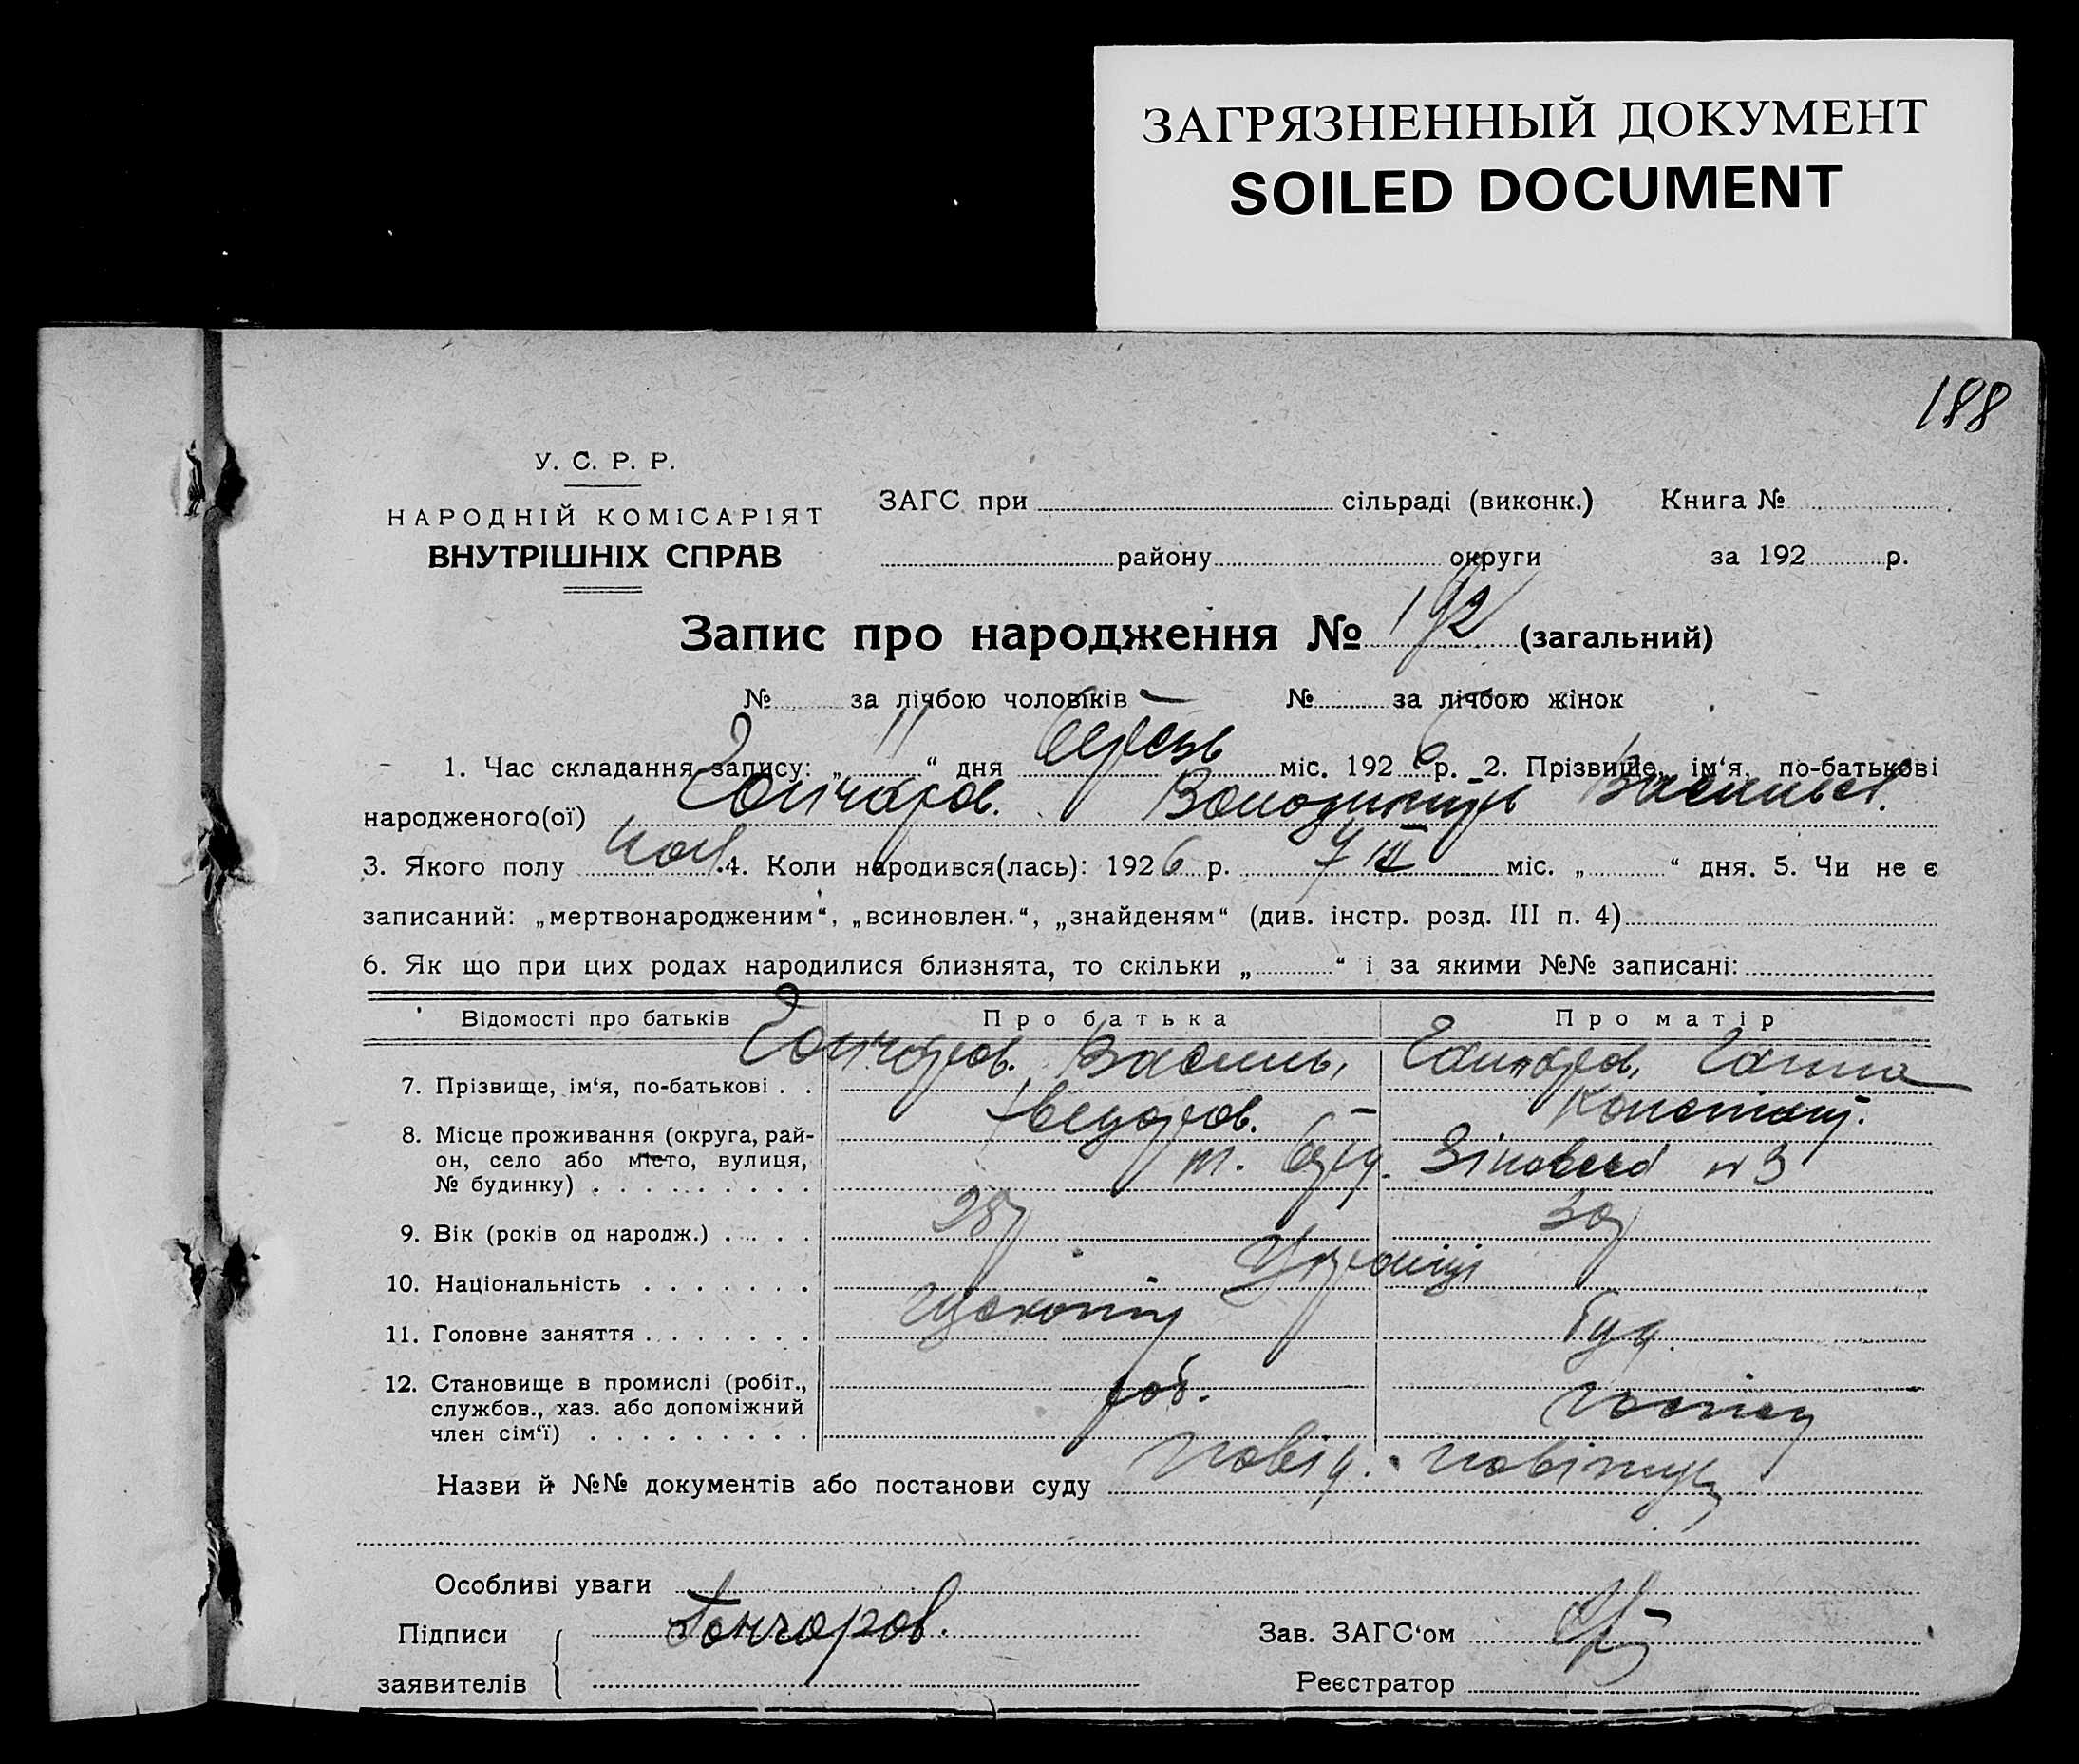 ЗАГРЯЗНЕННЫЙ ДОКУМЕНТ
SOILED DOCUMENT
188
У. С. Р. Р.
НАРОДНІЙ КОМІСАРІЯТ
ВНУТРІШНІХ СПРАВ
ЗАГС при сільраді (виконк.) Книга №
району округи за 192 р.
Запис про народження № 192 (загальний)
№ за лічбою чоловіків № за лічбою жінок
1. Час складання запису: „ 11 “ дня міс. 192 6 р. 2. Прізвище, ім‘я, по-батькові
народженого(ої) Гончаров. Володимир Васильев.
3. Якого полу чол. 4. Коли народився(лась): 192 6 р. 7 III міс. „ “ дня. 5. Чи не є
записаний: „мертвонародженим“, „всиновлен.“, „знайденям“ (див. інстр. розд. III п. 4)
6. Як що при цих родах народилися близнята, то скільки „ “ і за якими №№ записані:
Відомості про батьків Про батька Про матір
7. Прізвище, ім‘я, по-батькові . . Гончаров. Василь, Гончаров. Ганна
Федоров. Констант.
8. Місце проживання (округа, рай-
он, село або місто, вулиця,
№ будинку) . . . . . . . . . №3
9. Вік (років од народж.) . . . . 28р 30р
10. Національність . . . . . . . Українці
11. Головне заняття . . . . . . .
12. Становище в промислі (робіт.,
службов., хаз. або допоміжний
член сім‘ї) . . . . . . . . . роб.
Назви й №№ документів або постанови суду Повід.
Особливі уваги
Підписи Гончаров. Зав. ЗАГС‘ом
заявителів Реєстратор